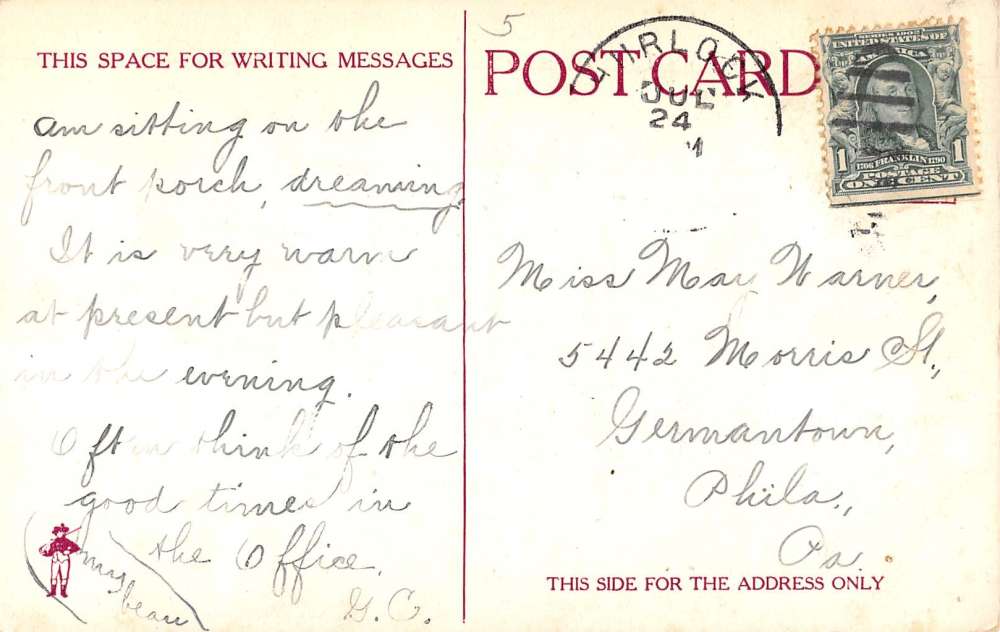 THIS SPACE FOR WRITING MESSAGES
am sitting on the
front porch, dreaming
It is very warm
at present but pleasant
in the evening.
Often think of the
good times in
the Office.
G. C.
my beau
5
POST CARD
HURLOCK
JUL
24
SERIES 1902
UNITED STATES OF
AMERICA
1 1706 FRANKLIN 1790 1
POSTAGE
ONE CENT
Miss May Warner,
5442 Morris St.,
Germantown,
Phila.,
Pa.
THIS SIDE FOR THE ADDRESS ONLY